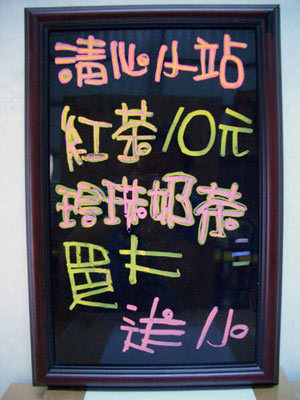 清心小站
紅茶10元
珍珠奶茶
買大
送小